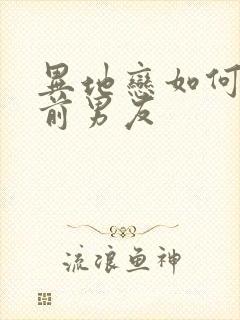 異地戀如何
前男友
流浪鱼神